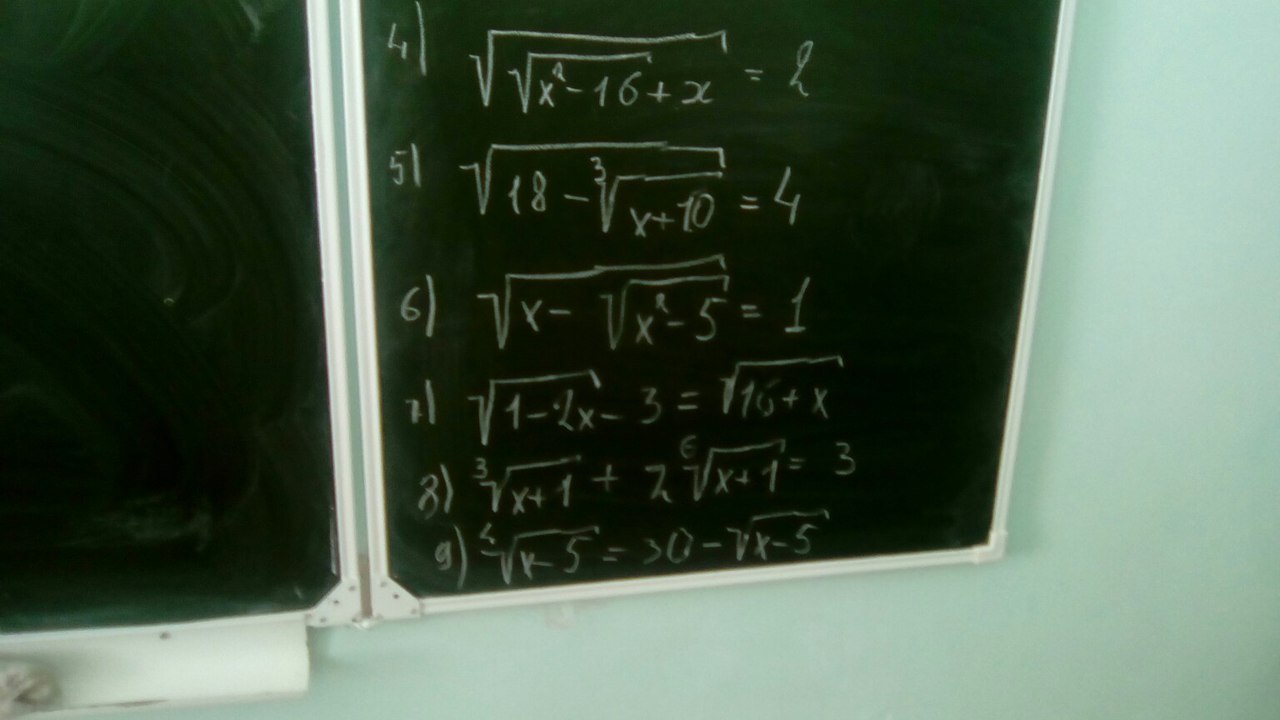 4) √(√(x²-16)+x) = 2
5) √(18 - ³√(x+10)) = 4
6) √(x - √(x²-5)) = 1
7) √(1-2x) - 3 = √(16+x)
8) ³√(x+1) + 2 ⁶√(x+1) = 3
9) ⁴√(x-5) = 30 - √(x-5)